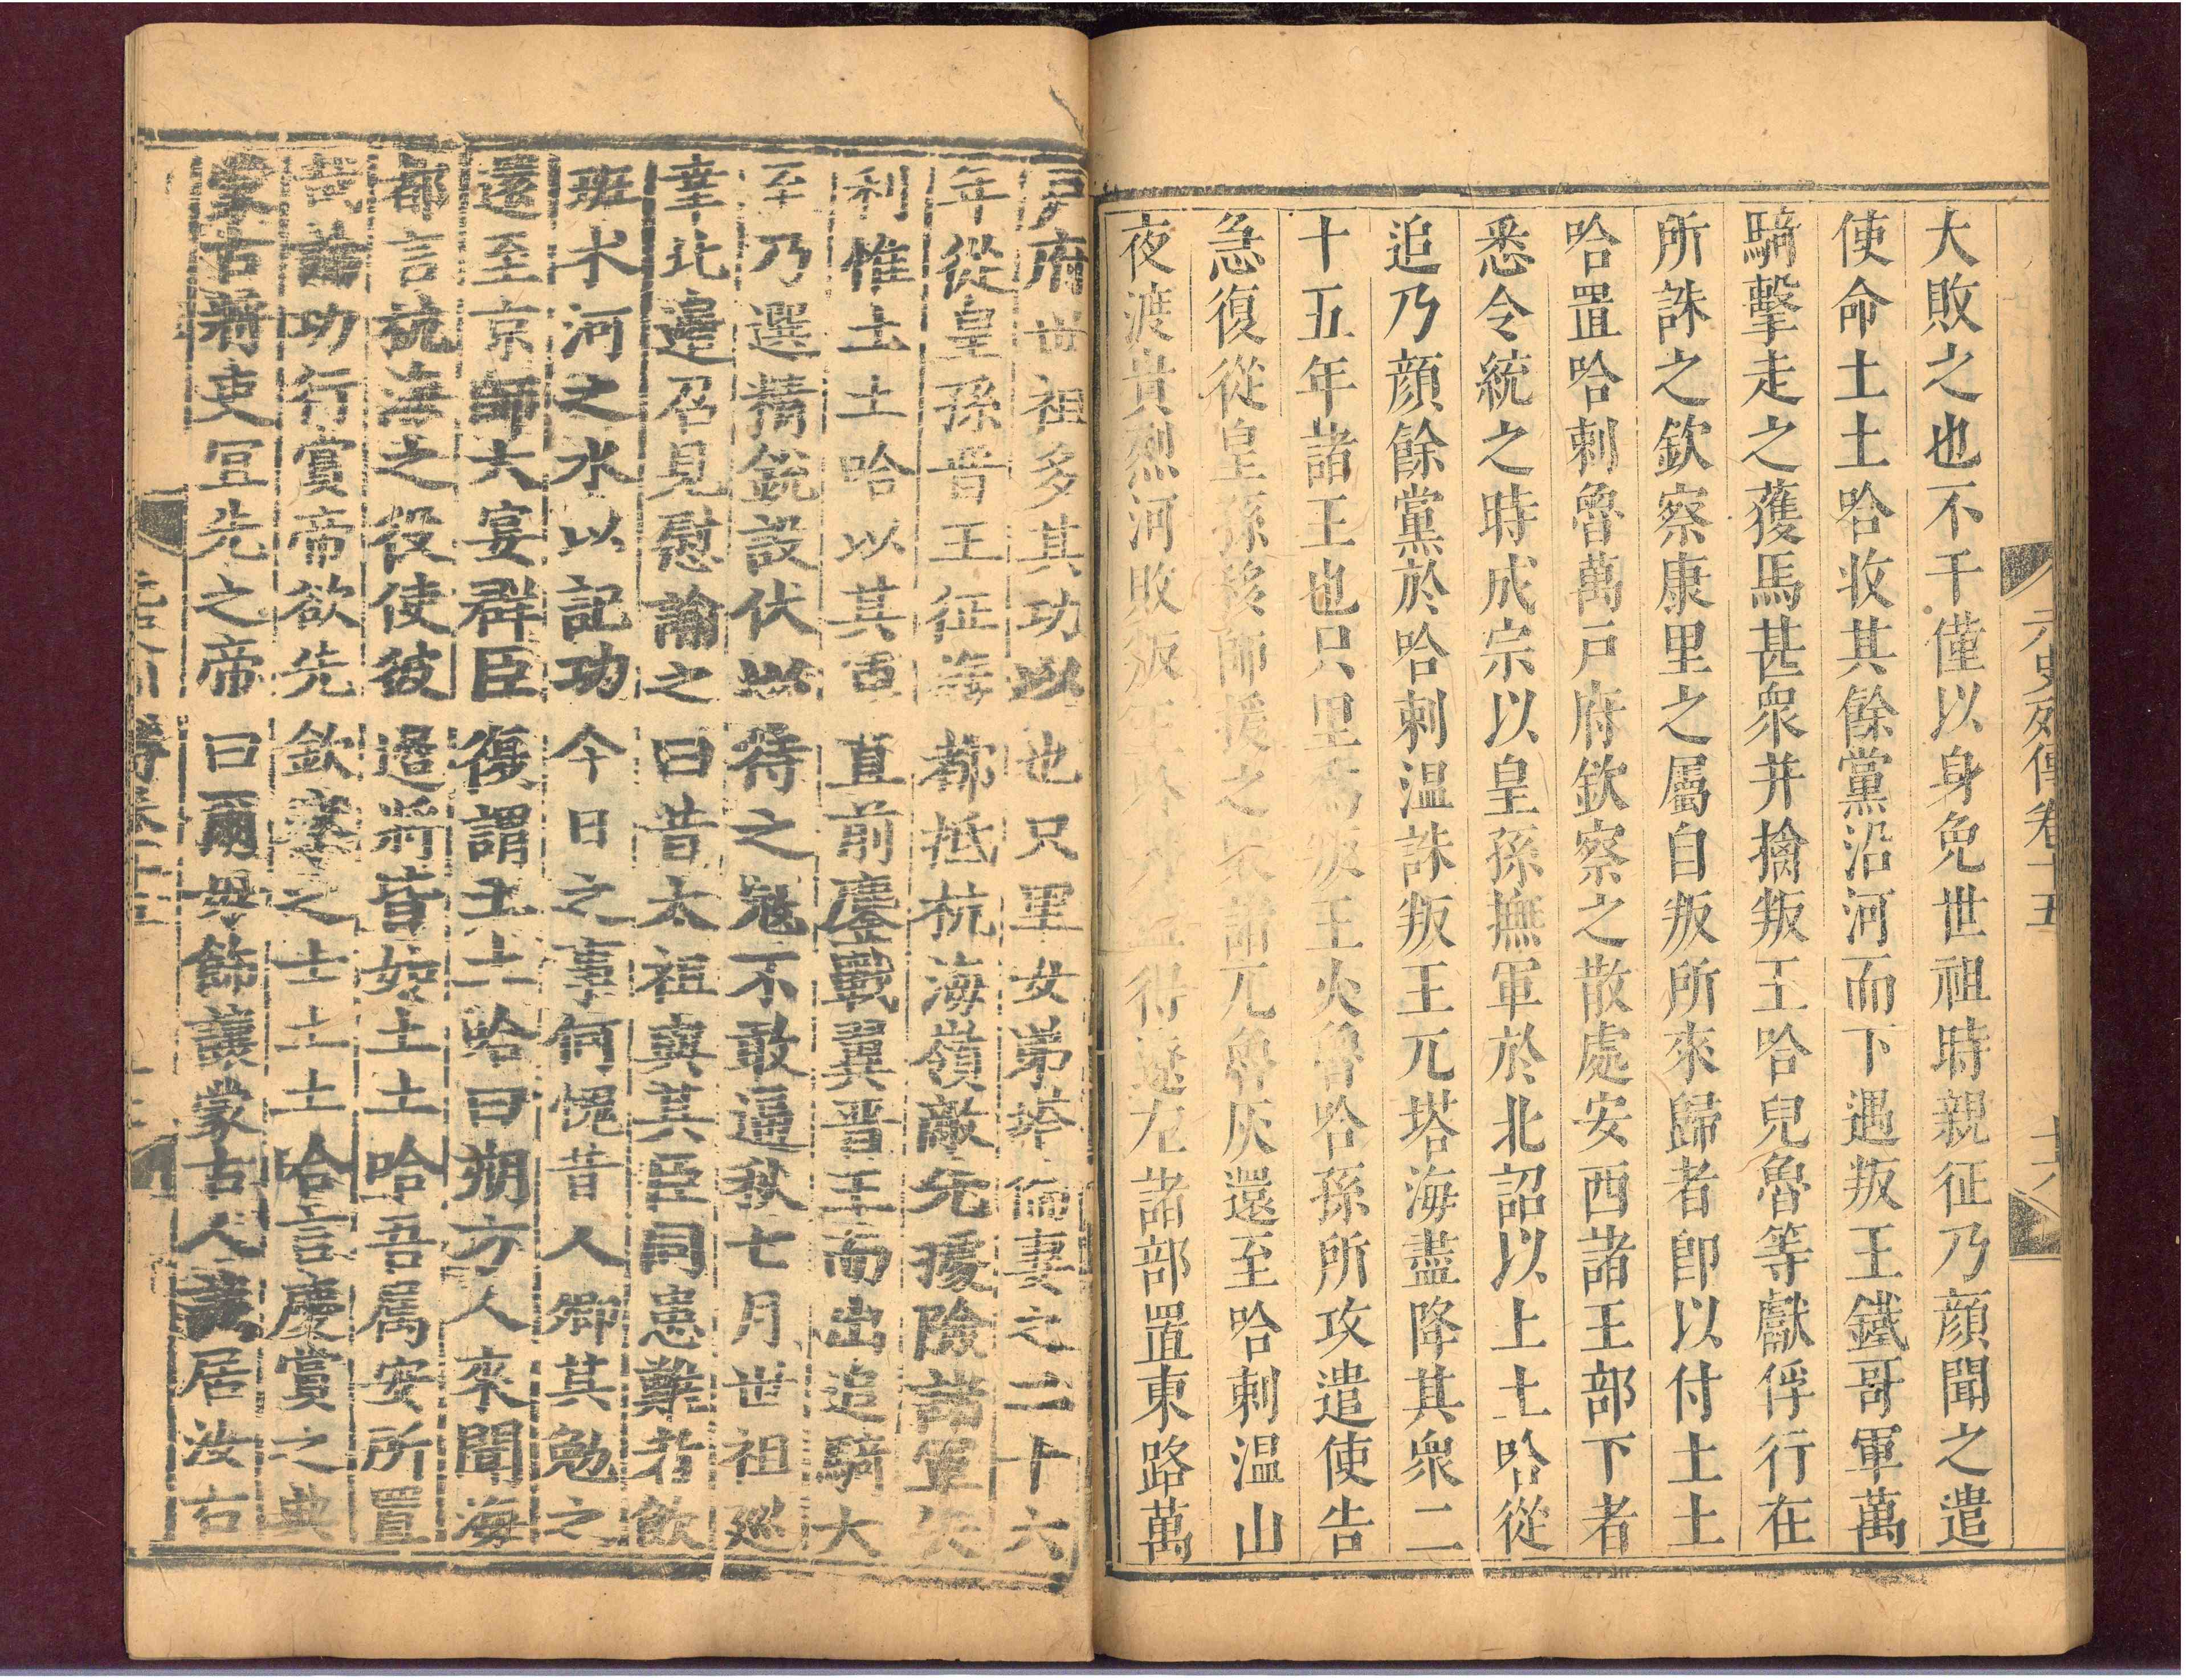 元史列傳卷十五
十六
大敗之也不干僅以身免世祖時親征乃顏聞之遣
使命土土哈收其餘黨沿河而下遇叛王鐵哥軍萬
騎擊走之獲馬甚衆并擒叛王哈兒魯等獻俘行在
所誅之欽察康里之屬自叛所來歸者即以付土土
哈置哈剌魯萬戸府欽察之散處安西諸王部下者
悉令統之時成宗以皇孫撫軍於北詔以上土哈從
追乃顏餘黨於哈剌温誅叛王兀塔海盡降其衆二
十五年諸王也只里爲叛王火魯哈孫所攻遣使告
急復從皇孫移師援之敗諸兀魯灰還至哈剌温山
夜渡貴烈河敗叛王哈丹盡得遼左諸部置東路萬
戸府世祖多其功以也只里女弟塔倫妻之二十六
年從皇孫晉王征海都抵杭海嶺敵先據險諸軍失
利惟土土哈以其軍直前鏖戰翼晉王而出追騎大
至乃選精銳設伏以待之冦不敢逼秋七月世祖廵
幸北邊召見慰諭之曰昔太祖與其臣同患難者飲
班朮河之水以記功今日之事何愧昔人卿其勉之
還至京師大宴群臣復謂土土哈曰朔方人來聞海
都言杭海之役使彼邊將皆如土土哈吾屬安所置
哉論功行賞帝欲先欽察之士土土哈言慶賞之典
蒙古將吏宜先之帝曰爾毋飾讓蒙古人誠居汝右
傳卷十五